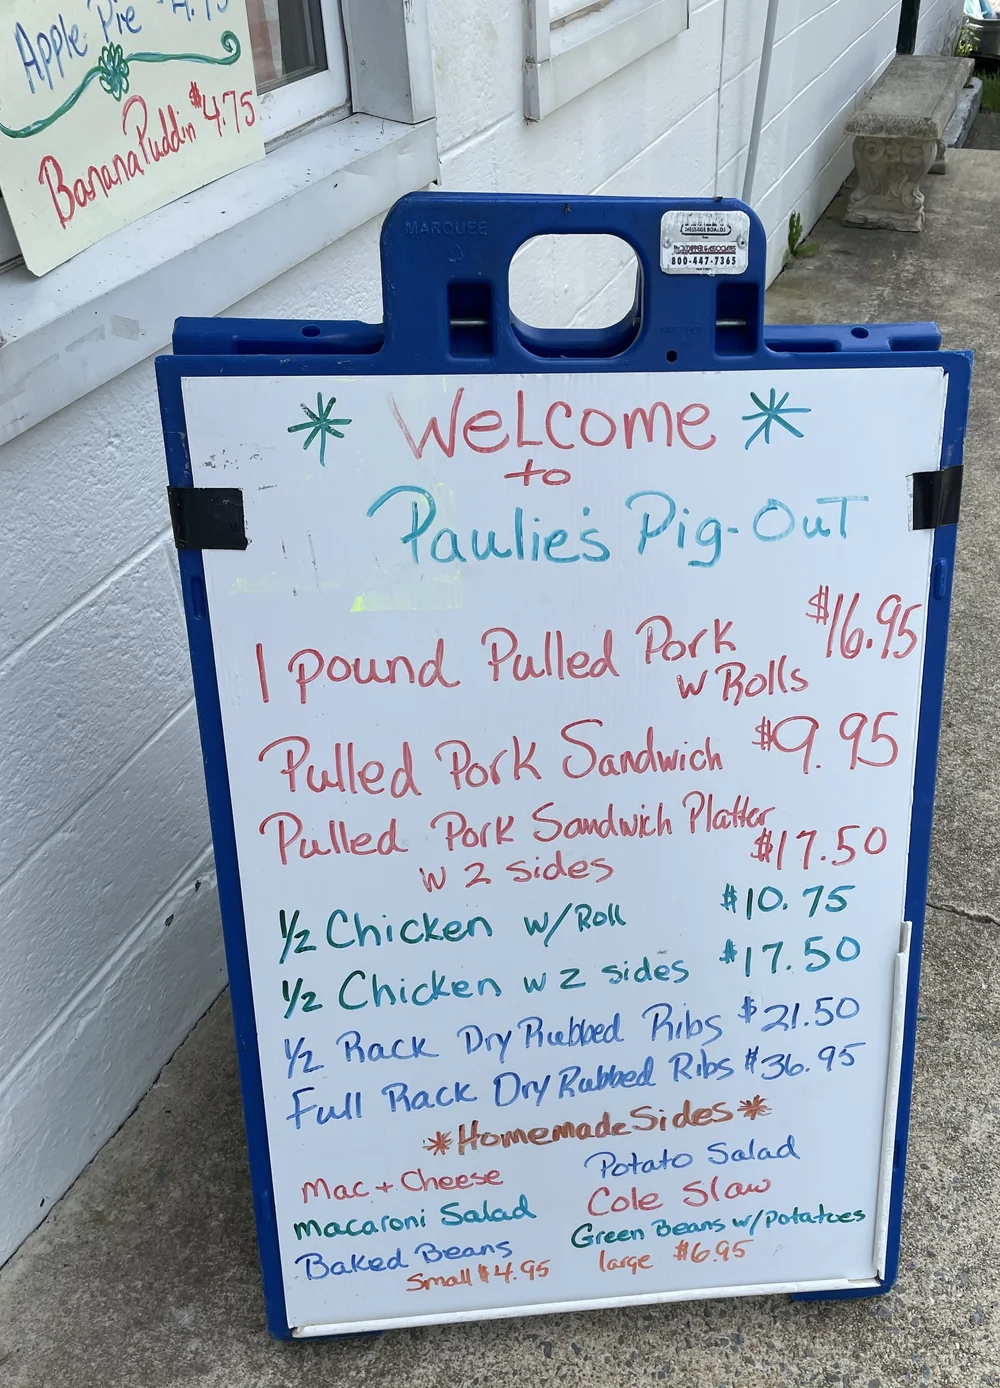 Apple Pie $4.75
Banana Puddin $4.75
MARQUEE
MESSAGE BOARDS
800-447-7365
* Welcome *
to
Paulie's Pig-Out
1 pound Pulled Pork $16.95
w Rolls
Pulled Pork Sandwich $9.95
Pulled Pork Sandwich Platter
w 2 sides $17.50
1/2 Chicken w/Roll $10.75
1/2 Chicken w 2 sides $17.50
1/2 Rack Dry Rubbed Ribs $21.50
Full Rack Dry Rubbed Ribs $36.95
*Homemade Sides*
Mac + Cheese Potato Salad
Macaroni Salad Cole Slaw
Baked Beans Green Beans w/potatoes
Small $4.95 large $6.95